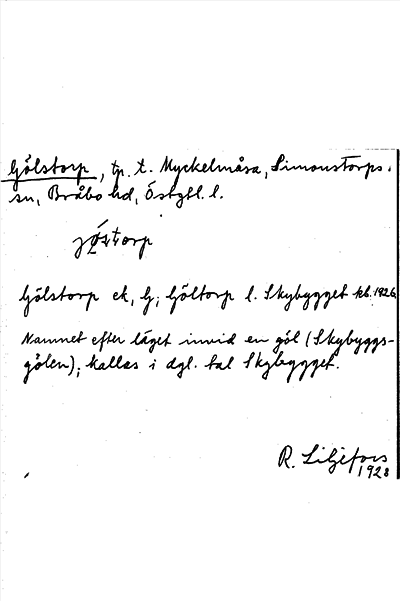 Gölstorp, tp. t. Myckelmåsa, Simonstorps
sn, Bråbo hd, Östgtl. l.
Gölstorp ek, G; Göltorp l. Skybygget kb. 1926.
Namnet efter läget invid en göl (Skybyggs-
gölen); kallas i dgl. tal Skybygget.
R. Liljefors
1928